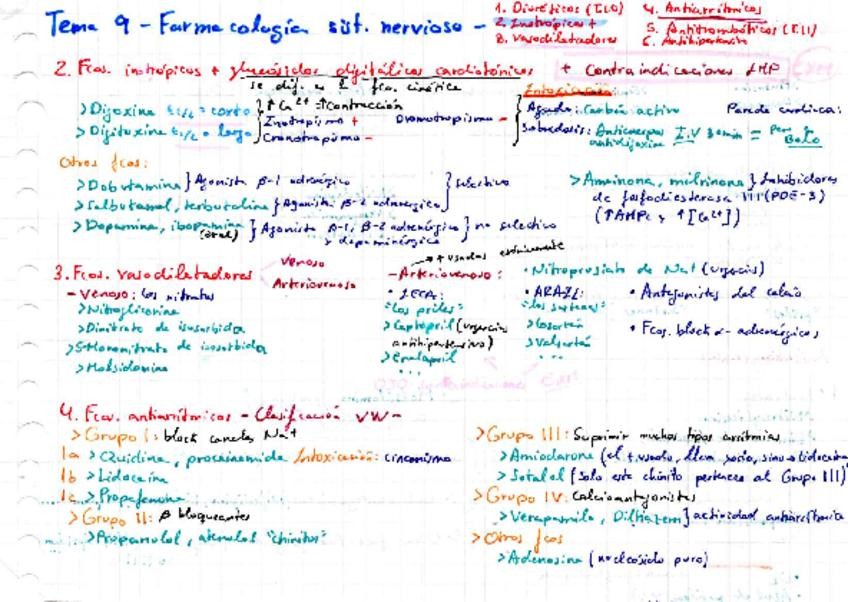 Tema 9 - Farmacología sist. nervioso -
1. Diuréticos (T.10)
2. Inotrópicos +
3. Vasodilatadores
4. Antiarrítmicos
5. Antitrombóticos (T.11)
6. Antihipertensivo
2. Fcos. inotrópicos + glucósidos digitálicos cardiotónicos + contraindicaciones
se dif. en fca. cinética
Intoxicación
>Digoxina t1/2 = corto
>Digitoxina t1/2 = largo
↑Ca2+ = ↑Contracción
Inotropismo +
Cronotropismo -
Dromotropismo -
Aguda: Carbón activo
Sobredosis: Anticuerpos antidigoxina I.V 30min =
Parada cardiaca:
Bolo
Otros fcos:
>Dobutamina } Agonista β-1 adrenérgico
>Salbutamol, terbutalina } Agonista β-2 adrenérgico
} selectivo
>Dopamina, ibopamina (oral) } Agonista β-1, β-2 adrenérgico y dopaminérgico } no selectivo
>Amrinona, milrinona } Inhibidores
de fosfodiesterasa III (PDE-3)
(↑AMPc y ↑[Ca2+])
3. Fcos. vasodilatadores
Venoso
Arteriovenoso
- Venoso: los nitratos
>Nitroglicerina
>Dinitrato de isosorbida
>5-Mononitrato de isosorbida
>Molsidomina
→ + usados
- Arteriovenoso:
• IECA:
"los priles"
>Captopril (urgencias
antihipertensivo)
>Enalapril
...
• Nitroprusiato de Na+ (urgencias)
• ARAII:
"los sartanes"
>Losartán
>Valsartán
...
• Antagonistas del calcio
• Fcos. block α-adrenérgicos
4. Fcos. antiarrítmicos - Clasificación VW -
>Grupo I: block canales Na+
1a >Quidina, procainamida Intoxicación: cinconismo
1b >Lidocaína
1c >Propafenona
>Grupo II: β bloqueantes
>Propanolol, atenolol "chinitos"
>Grupo III: Suprimir muchos tipos arritmias
>Amiodarona (el + usado, sino → lidocaína
>Sotalol (solo este chinito pertenece al Grupo III)
>Grupo IV: Calcioantagonistas
>Verapamilo, Diltiazem } actividad antiarrítmica
>Otros fcos
>Adenosina (nucleósido puro)